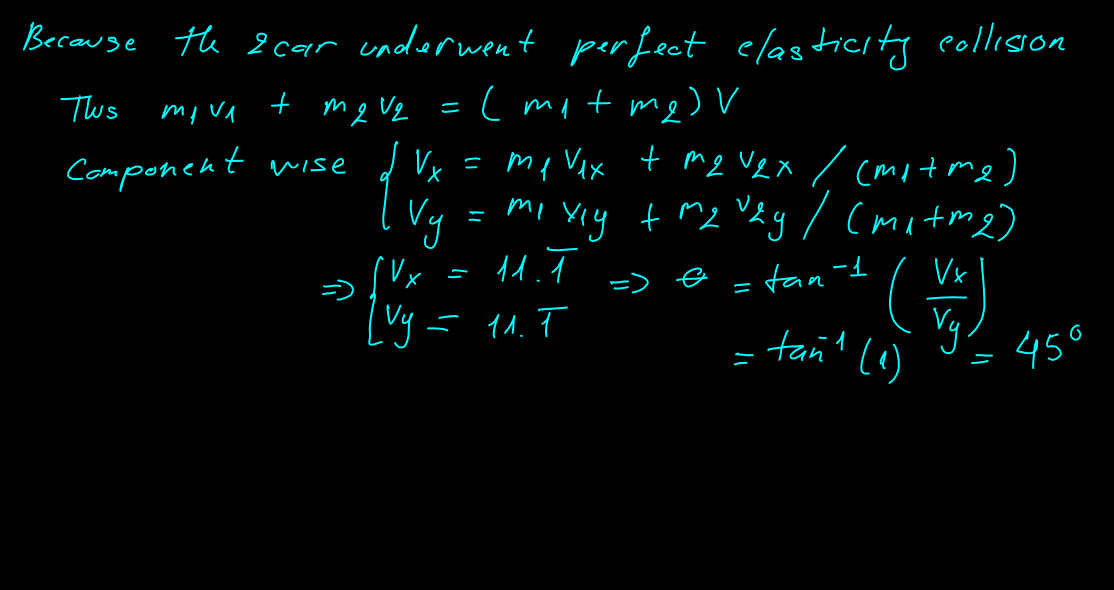 Because the 2 car underwent perfect elasticity collision
Thus m1 v1 + m2 v2 = ( m1 + m2 ) V
Component wise { Vx = m1 V1x + m2 v2x / (m1 + m2)
Vy = m1 v1y + m2 v2y / (m1 + m2)
=> { Vx = 11.1̅ => θ = tan⁻¹ ( Vx / Vy )
Vy = 11.1̅
= tan⁻¹ (1) = 45°